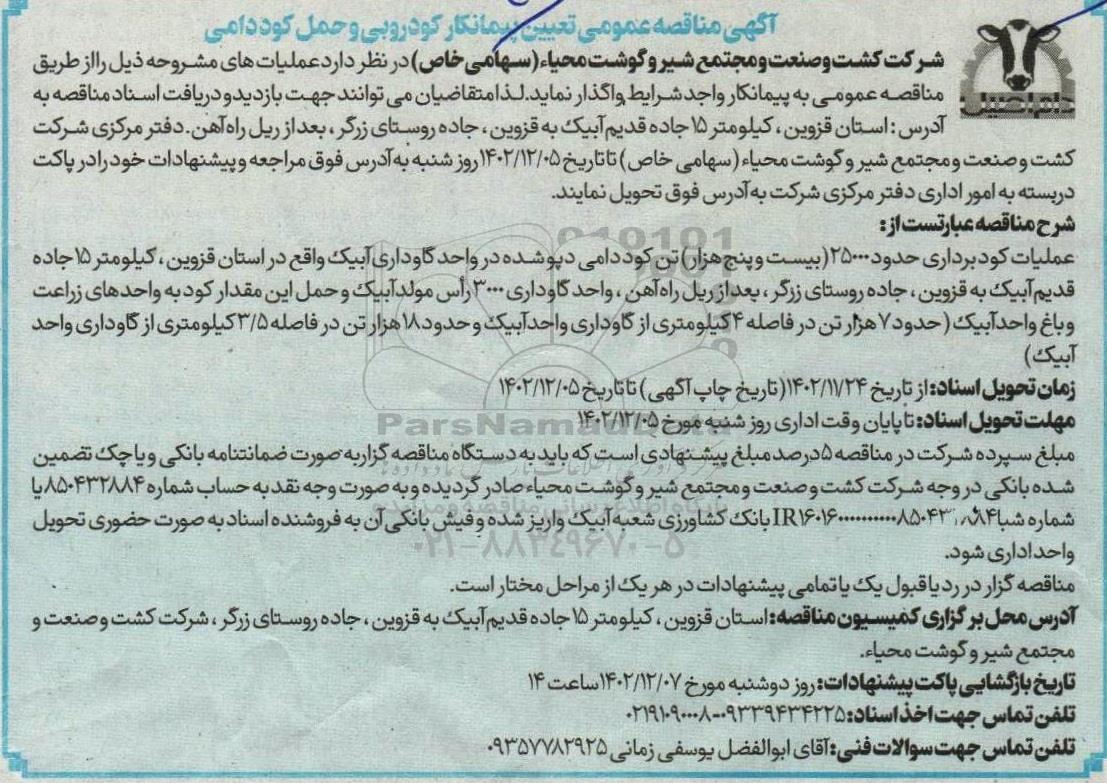 آگهی مناقصه عمومی تعیین پیمانکار کودروبی و حمل کود دامی
دام اصیل
شرکت کشت و صنعت و مجتمع شیر و گوشت محیاء (سهامی خاص) در نظر دارد عملیات های مشروحه ذیل را از طریق
مناقصه عمومی به پیمانکار واجد شرایط واگذار نماید. لذا متقاضیان می توانند جهت بازدید و دریافت اسناد مناقصه به
آدرس : استان قزوین ، کیلومتر ۱۵ جاده قدیم آبیک به قزوین ، جاده روستای زرگر ، بعد از ریل راه آهن . دفتر مرکزی شرکت
کشت و صنعت و مجتمع شیر و گوشت محیاء (سهامی خاص) تا تاریخ ۱۴۰۲/۱۲/۰۵ روز شنبه به آدرس فوق مراجعه و پیشنهادات خود را در پاکت
دربسته به امور اداری دفتر مرکزی شرکت به آدرس فوق تحویل نمایند.
شرح مناقصه عبارتست از :
عملیات کودبرداری حدود ۲۵۰۰۰ (بیست و پنج هزار) تن کود دامی دپو شده در واحد گاوداری آبیک واقع در استان قزوین ، کیلومتر ۱۵ جاده
قدیم آبیک به قزوین ، جاده روستای زرگر ، بعد از ریل راه آهن ، واحد گاوداری ۳۰۰۰ رأس مولد آبیک و حمل این مقدار کود به واحدهای زراعت
و باغ واحد آبیک (حدود ۷ هزار تن در فاصله ۴ کیلومتری از گاوداری واحد آبیک و حدود ۱۸ هزار تن در فاصله ۳/۵ کیلومتری از گاوداری واحد
آبیک)
زمان تحویل اسناد: از تاریخ ۱۴۰۲/۱۱/۲۴ (تاریخ چاپ آگهی) تا تاریخ ۱۴۰۲/۱۲/۰۵
مهلت تحویل اسناد: تا پایان وقت اداری روز شنبه مورخ ۱۴۰۲/۱۲/۰۵
ParsNamadData
مبلغ سپرده شرکت در مناقصه ۵ درصد مبلغ پیشنهادی است که باید به دستگاه مناقصه گزار به صورت ضمانتنامه بانکی و یا چک تضمین
شده بانکی در وجه شرکت کشت و صنعت و مجتمع شیر و گوشت محیاء صادر گردیده و به صورت وجه نقد به حساب شماره ۸۵۰۴۳۲۸۸۴ یا
شماره شبا بانک کشاورزی شعبه آبیک واریز شده و فیش بانکی آن به فروشنده اسناد به صورت حضوری تحویل
۰۲۱-۸۸۳۴۹۶۷۰-۵
واحد اداری شود.
مناقصه گزار در رد یا قبول یک یا تمامی پیشنهادات در هر یک از مراحل مختار است.
آدرس محل برگزاری کمیسیون مناقصه: استان قزوین ، کیلومتر ۱۵ جاده قدیم آبیک به قزوین ، جاده روستای زرگر ، شرکت کشت و صنعت و
مجتمع شیر و گوشت محیاء.
تاریخ بازگشایی پاکت پیشنهادات: روز دوشنبه مورخ ۱۴۰۲/۱۲/۰۷ ساعت ۱۴
تلفن تماس جهت اخذ اسناد: ۰۹۳۳۹۴۳۴۲۲۵-۰۲۱۹۱۰۹۰۰۰۸
تلفن تماس جهت سوالات فنی: آقای ابوالفضل یوسفی زمانی ۰۹۳۵۷۷۸۲۹۲۵